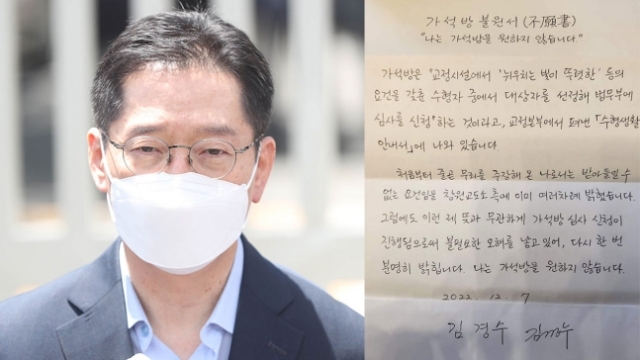 가석방 불원서 (不願書)
"나는 가석방을 원하지 않습니다"
가석방은 '교정시설에서 '뉘우치는 빛이 뚜렷한' 등의
요건을 갖춘 수형자 중에서 대상자를 선정해 법무부에
심사를 신청"하는 것이라고, 교정본부에서 펴낸 「수형생활
안내서」에 나와 있습니다.
처음부터 줄곧 무죄를 주장해 온 나로서는 받아들일 수
없는 요건임을 창원교도소 측에 이미 여러차례 밝혔습니다.
그럼에도 이런 제 뜻과 무관하게 가석방 심사 신청이
진행됨으로써 불필요한 오해를 낳고 있어, 다시 한 번
분명히 밝힙니다. 나는 가석방을 원하지 않습니다.
2022. 12. 7
김 경 수